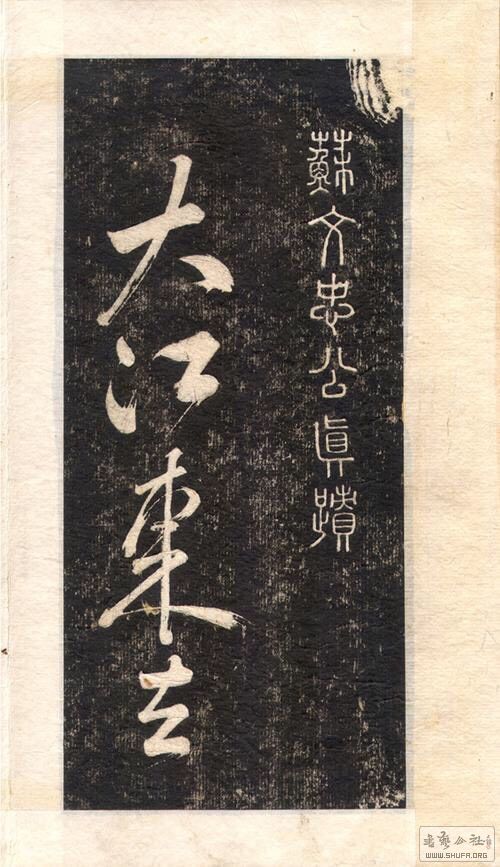 蘇文忠公眞蹟
大江東去
書藝公社
WWW.SHUFA.ORG